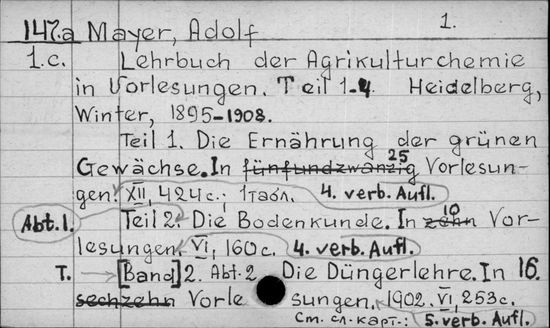 1.
147.a Mayer, Adolf
1.c. Lehrbuch der Agrikulturchemie
in Vorlesungen. Teil 1-4 Heidelberg,
Winter, 1895-1908.
Teil 1. Die Ernährung der grünen
Gewächse. In fünfundzwanzig 25 Vorlesun-
gen. XII, 424 с.; 1 табл. 4. verb. Aufl.
Abt.1. Teil 2. Die Bodenkunde. In zehn 10 Vor-
lesungen. VI, 160 с. 4. verb. Aufl.
T. [Band] 2. Abt. 2 Die Düngerlehre. In 16.
sechzehn Vorlesungen. 1902. VI, 253 с.
См. сл. карт.: 5. verb. Aufl.